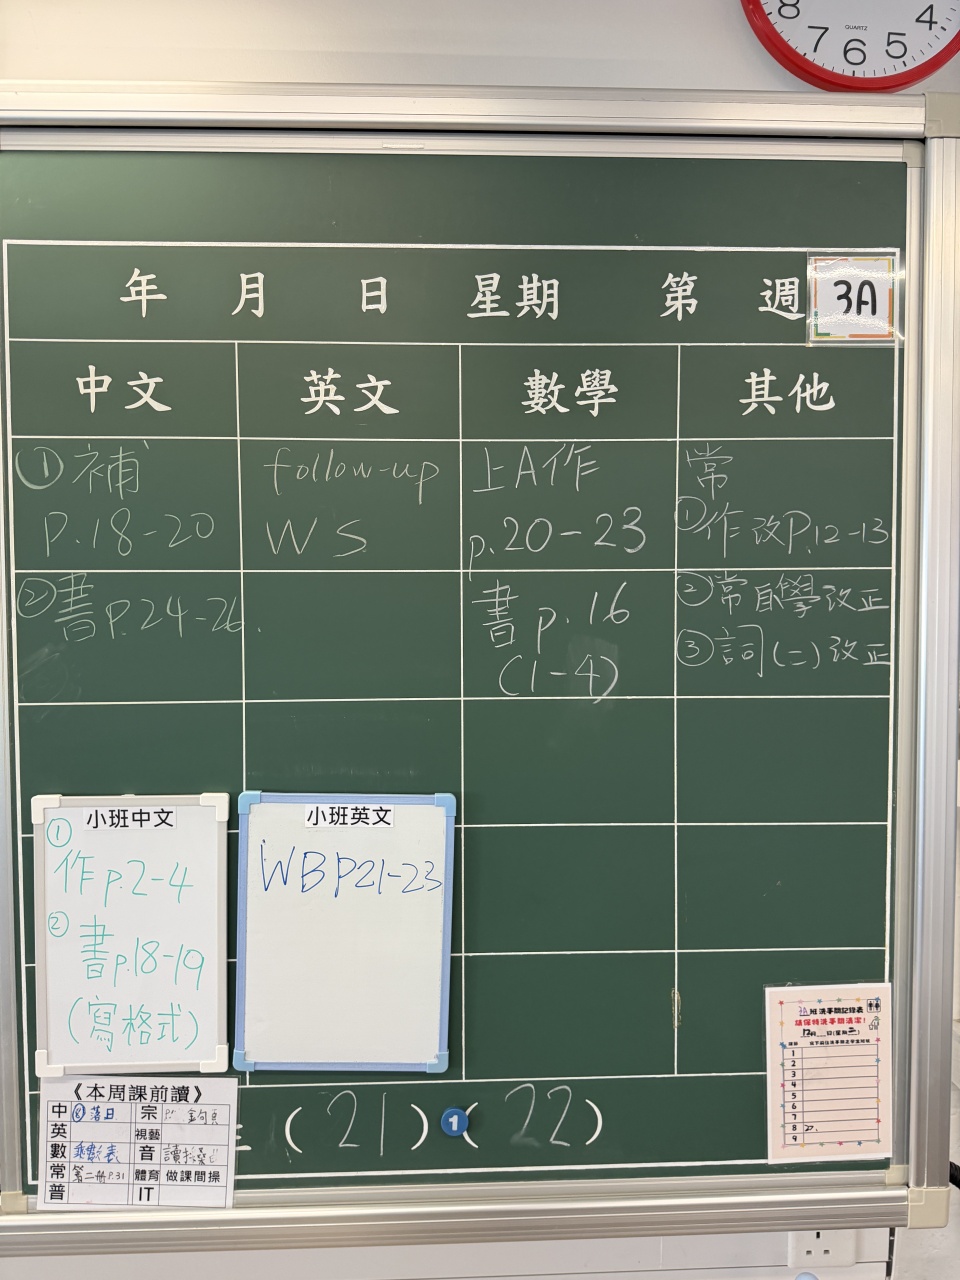 8 7 6 5 4
QUARTZ
年 月 日 星期 第 週
3A
中文 英文 數學 其他
①補
P.18-20
②書P.24-26.
follow-up
WS
上A作
p.20-23
書p.16
(1-4)
常
①作改P.12-13
②常自學改正
③詞(二)改正
小班中文
①
作p.2-4
②
書p.18-19
(寫格式)
小班英文
WBP21-23
3A班洗手間記錄表
請保持洗手間清潔!
12月 日(星期二)
1
2
3
4
5
6
7
8 22.
9
《本周課前讀》
中 ⑧落日 宗
英 視藝
數 乘數表 音
常 第二冊P.31 體育 做課間操
普 IT
(21) 1 (22)